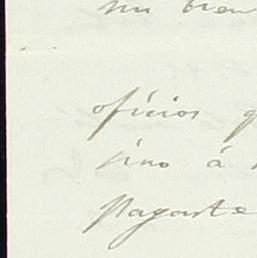 mi bien
oficios q
sino á
pagaste